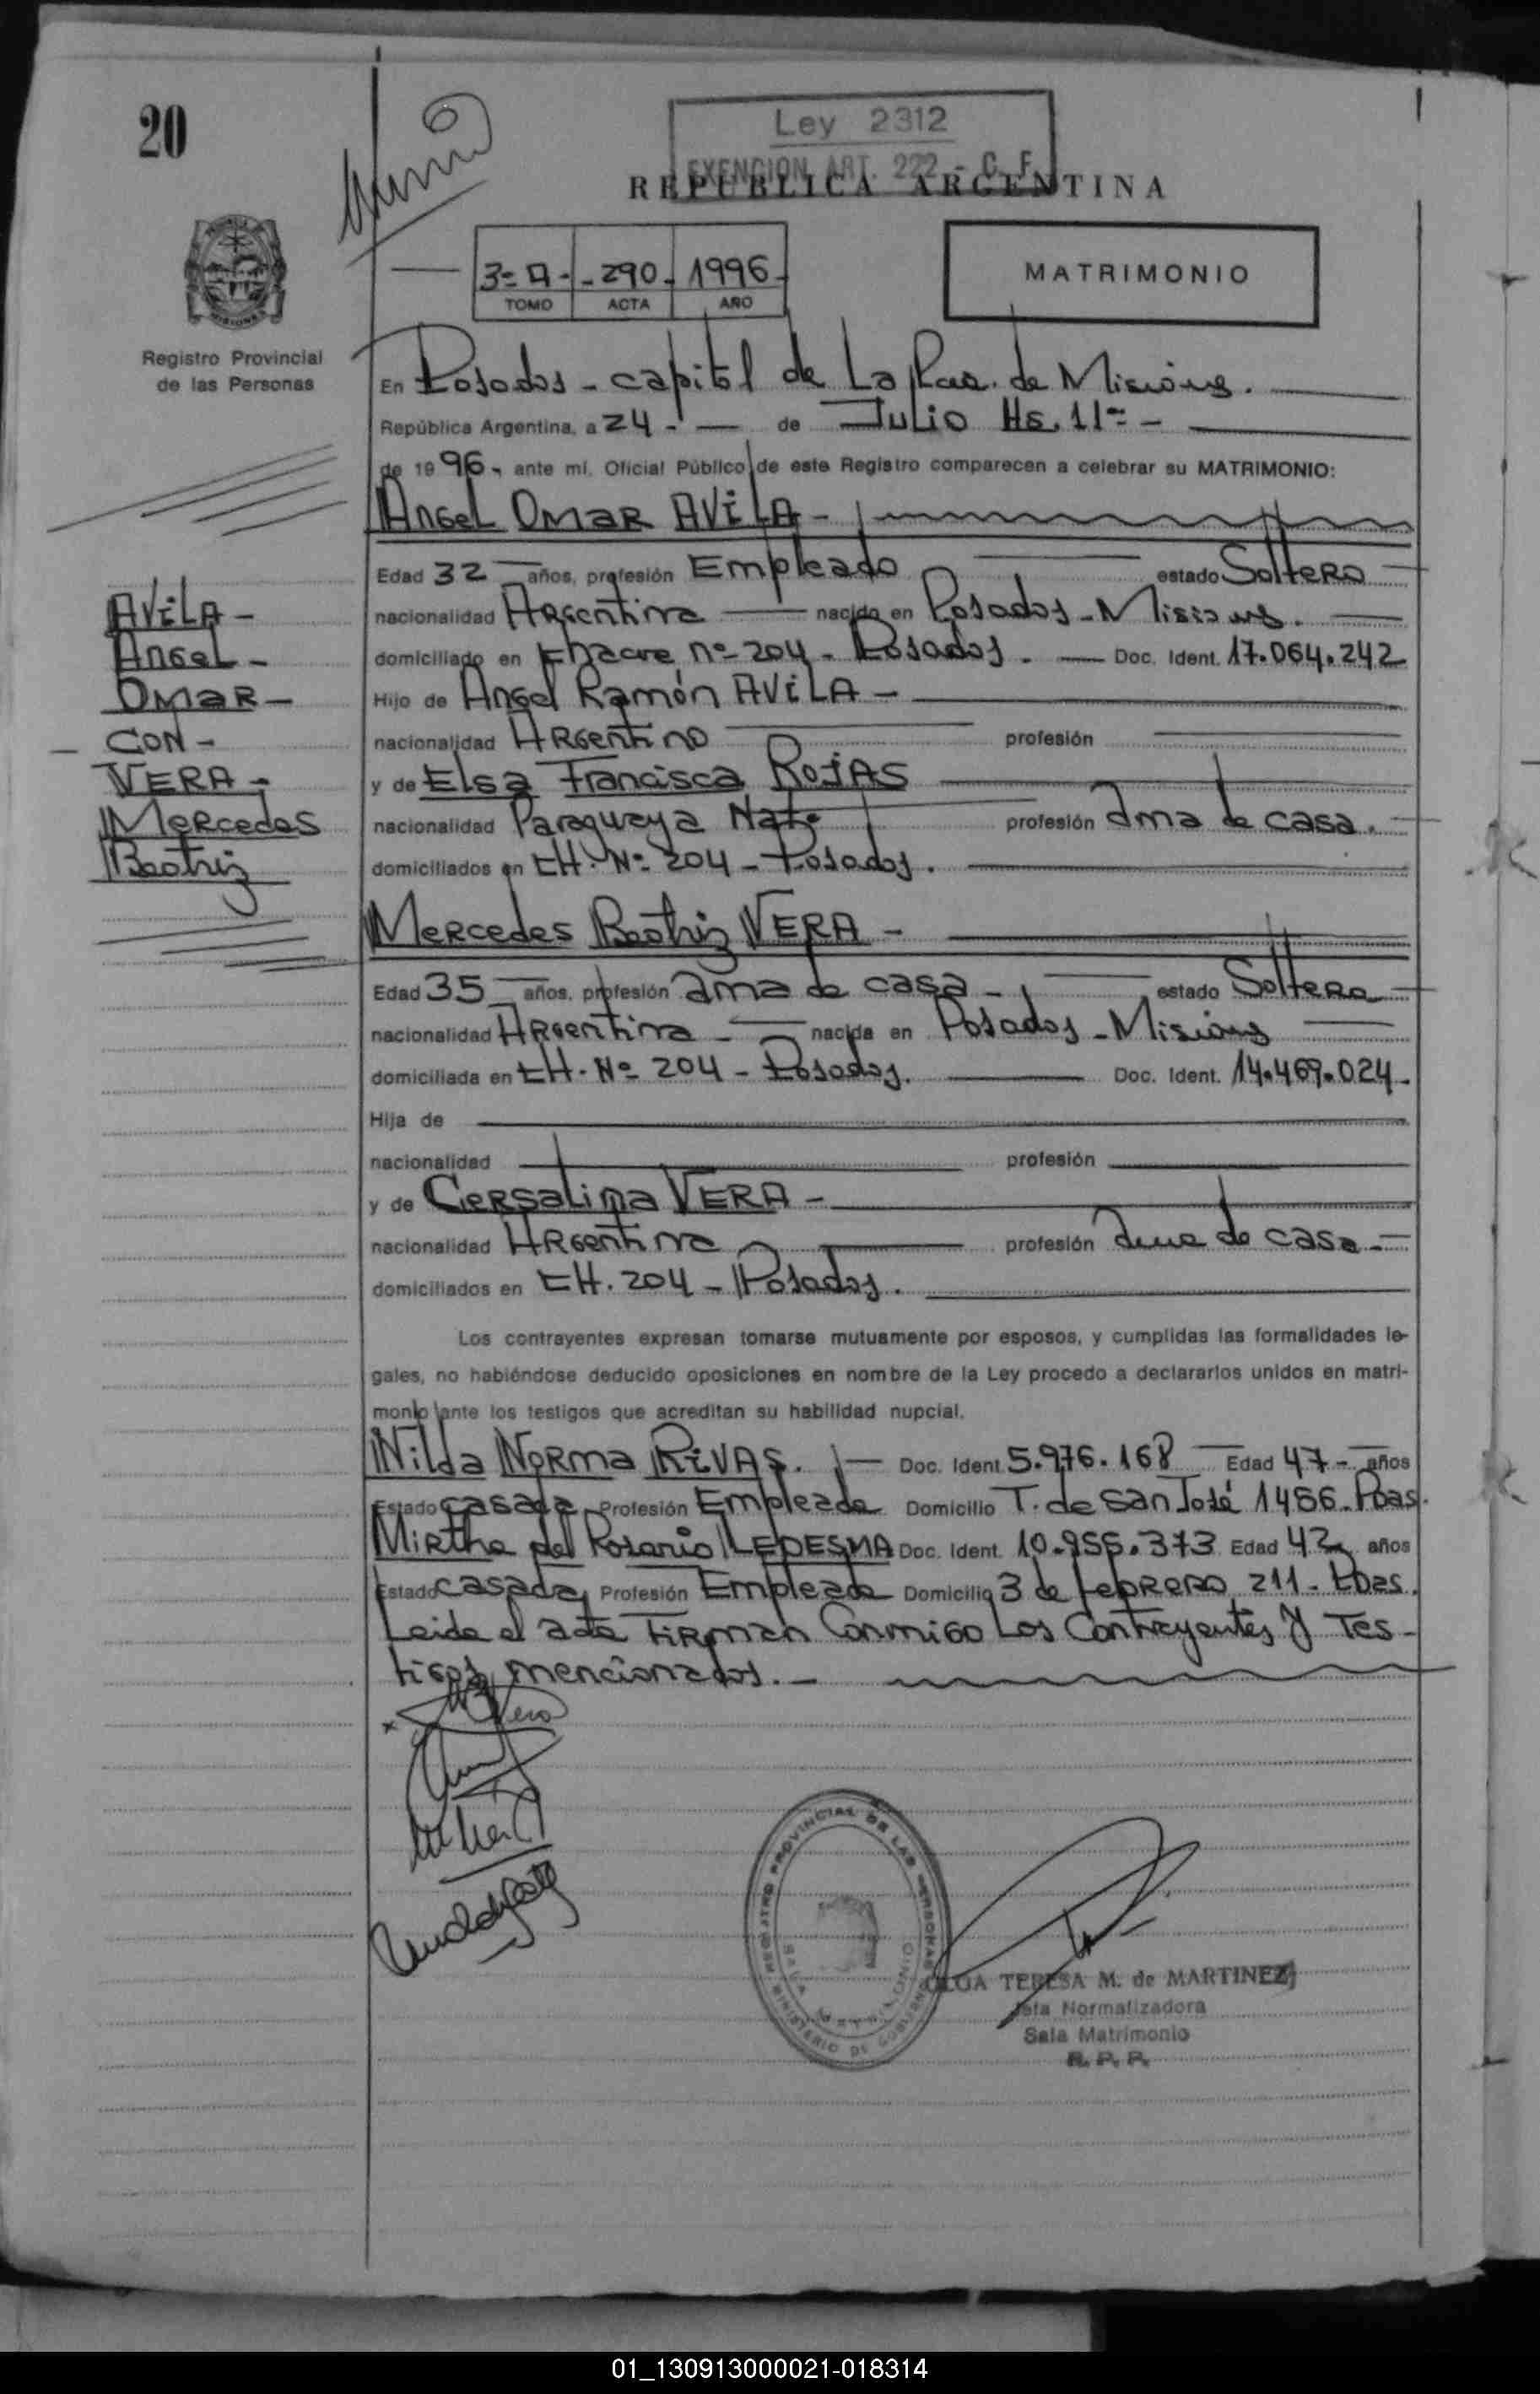 20
Ley 2312
EXENCION ART. 222 - C. F.
REPUBLICA ARGENTINA
3=A - - 290 - 1996 -
TOMO ACTA AÑO
MATRIMONIO
Registro Provincial
de las Personas
En Posadas - capital de La Pcia. de Misiones.
República Argentina, a 24 - de Julio Hs. 11= -
de 1996 -, ante mí, Oficial Público de este Registro comparecen a celebrar su MATRIMONIO:
Angel Omar AVILA -
Edad 32 años, profesión Empleado estado Soltero
nacionalidad Argentina nacido en Posadas - Misiones.
domiciliado en Chacra nº 204 - Posadas. Doc. Ident. 17.064.242
Hijo de Angel Ramón AVILA -
nacionalidad Argentino profesión
y de Elsa Francisca ROJAS
nacionalidad Paraguaya Nat. profesión ama de casa.
domiciliados en CH. Nº 204 - Posadas.
Mercedes Beatriz VERA -
Edad 35 años, profesión ama de casa - estado Soltera
nacionalidad Argentina - nacida en Posadas - Misiones
domiciliada en CH. Nº 204 - Posadas. Doc. Ident. 14.469.024 -
Hija de
nacionalidad profesión
y de Gersalina VERA -
nacionalidad Argentina profesión ama de casa -
domiciliados en CH. 204 - Posadas.
Los contrayentes expresan tomarse mutuamente por esposos, y cumplidas las formalidades le-
gales, no habiéndose deducido oposiciones en nombre de la Ley procedo a declararlos unidos en matri-
monio ante los testigos que acreditan su habilidad nupcial.
Nilda Norma RIVAS. - Doc. Ident. 5.976.168 Edad 47 - años
Estado casada Profesión Empleada Domicilio T. de San José 1456 - Pdas.
Mirtha del Rosario LEDESMA Doc. Ident. 10.955.373 Edad 42 años
Estado casada, Profesión Empleada Domicilio 3 de febrero 211 - Pdas.
Leida el acta Firman Conmigo Los Contrayentes y Tes-
tigos mencionados. -
AVILA -
Angel -
Omar -
- CON -
VERA -
Mercedes
Beatriz
REGISTRO PROVINCIAL DE LAS PERSONAS
SALA MATRIMONIO
MINISTERIO DE GOBIERNO
OLGA TERESA M. de MARTINEZ
Jefa Normalizadora
Sala Matrimonio
R. P. P.
01_130913000021-018314